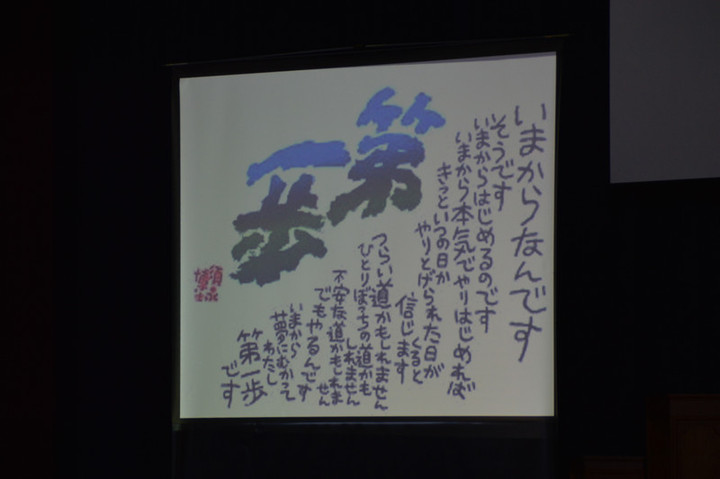 いまからなんです
そうです
いまからはじめるのです
いまから本気でやりはじめれば
きっといつの日か
やりとげられた日が
くると
信じます
つらい道かもしれません
ひとりぼっちの道かも
しれません
不安な道かもしれま
せん
でもやるんです
いまから
夢にむかって
わたし
第一歩
です
第
一歩